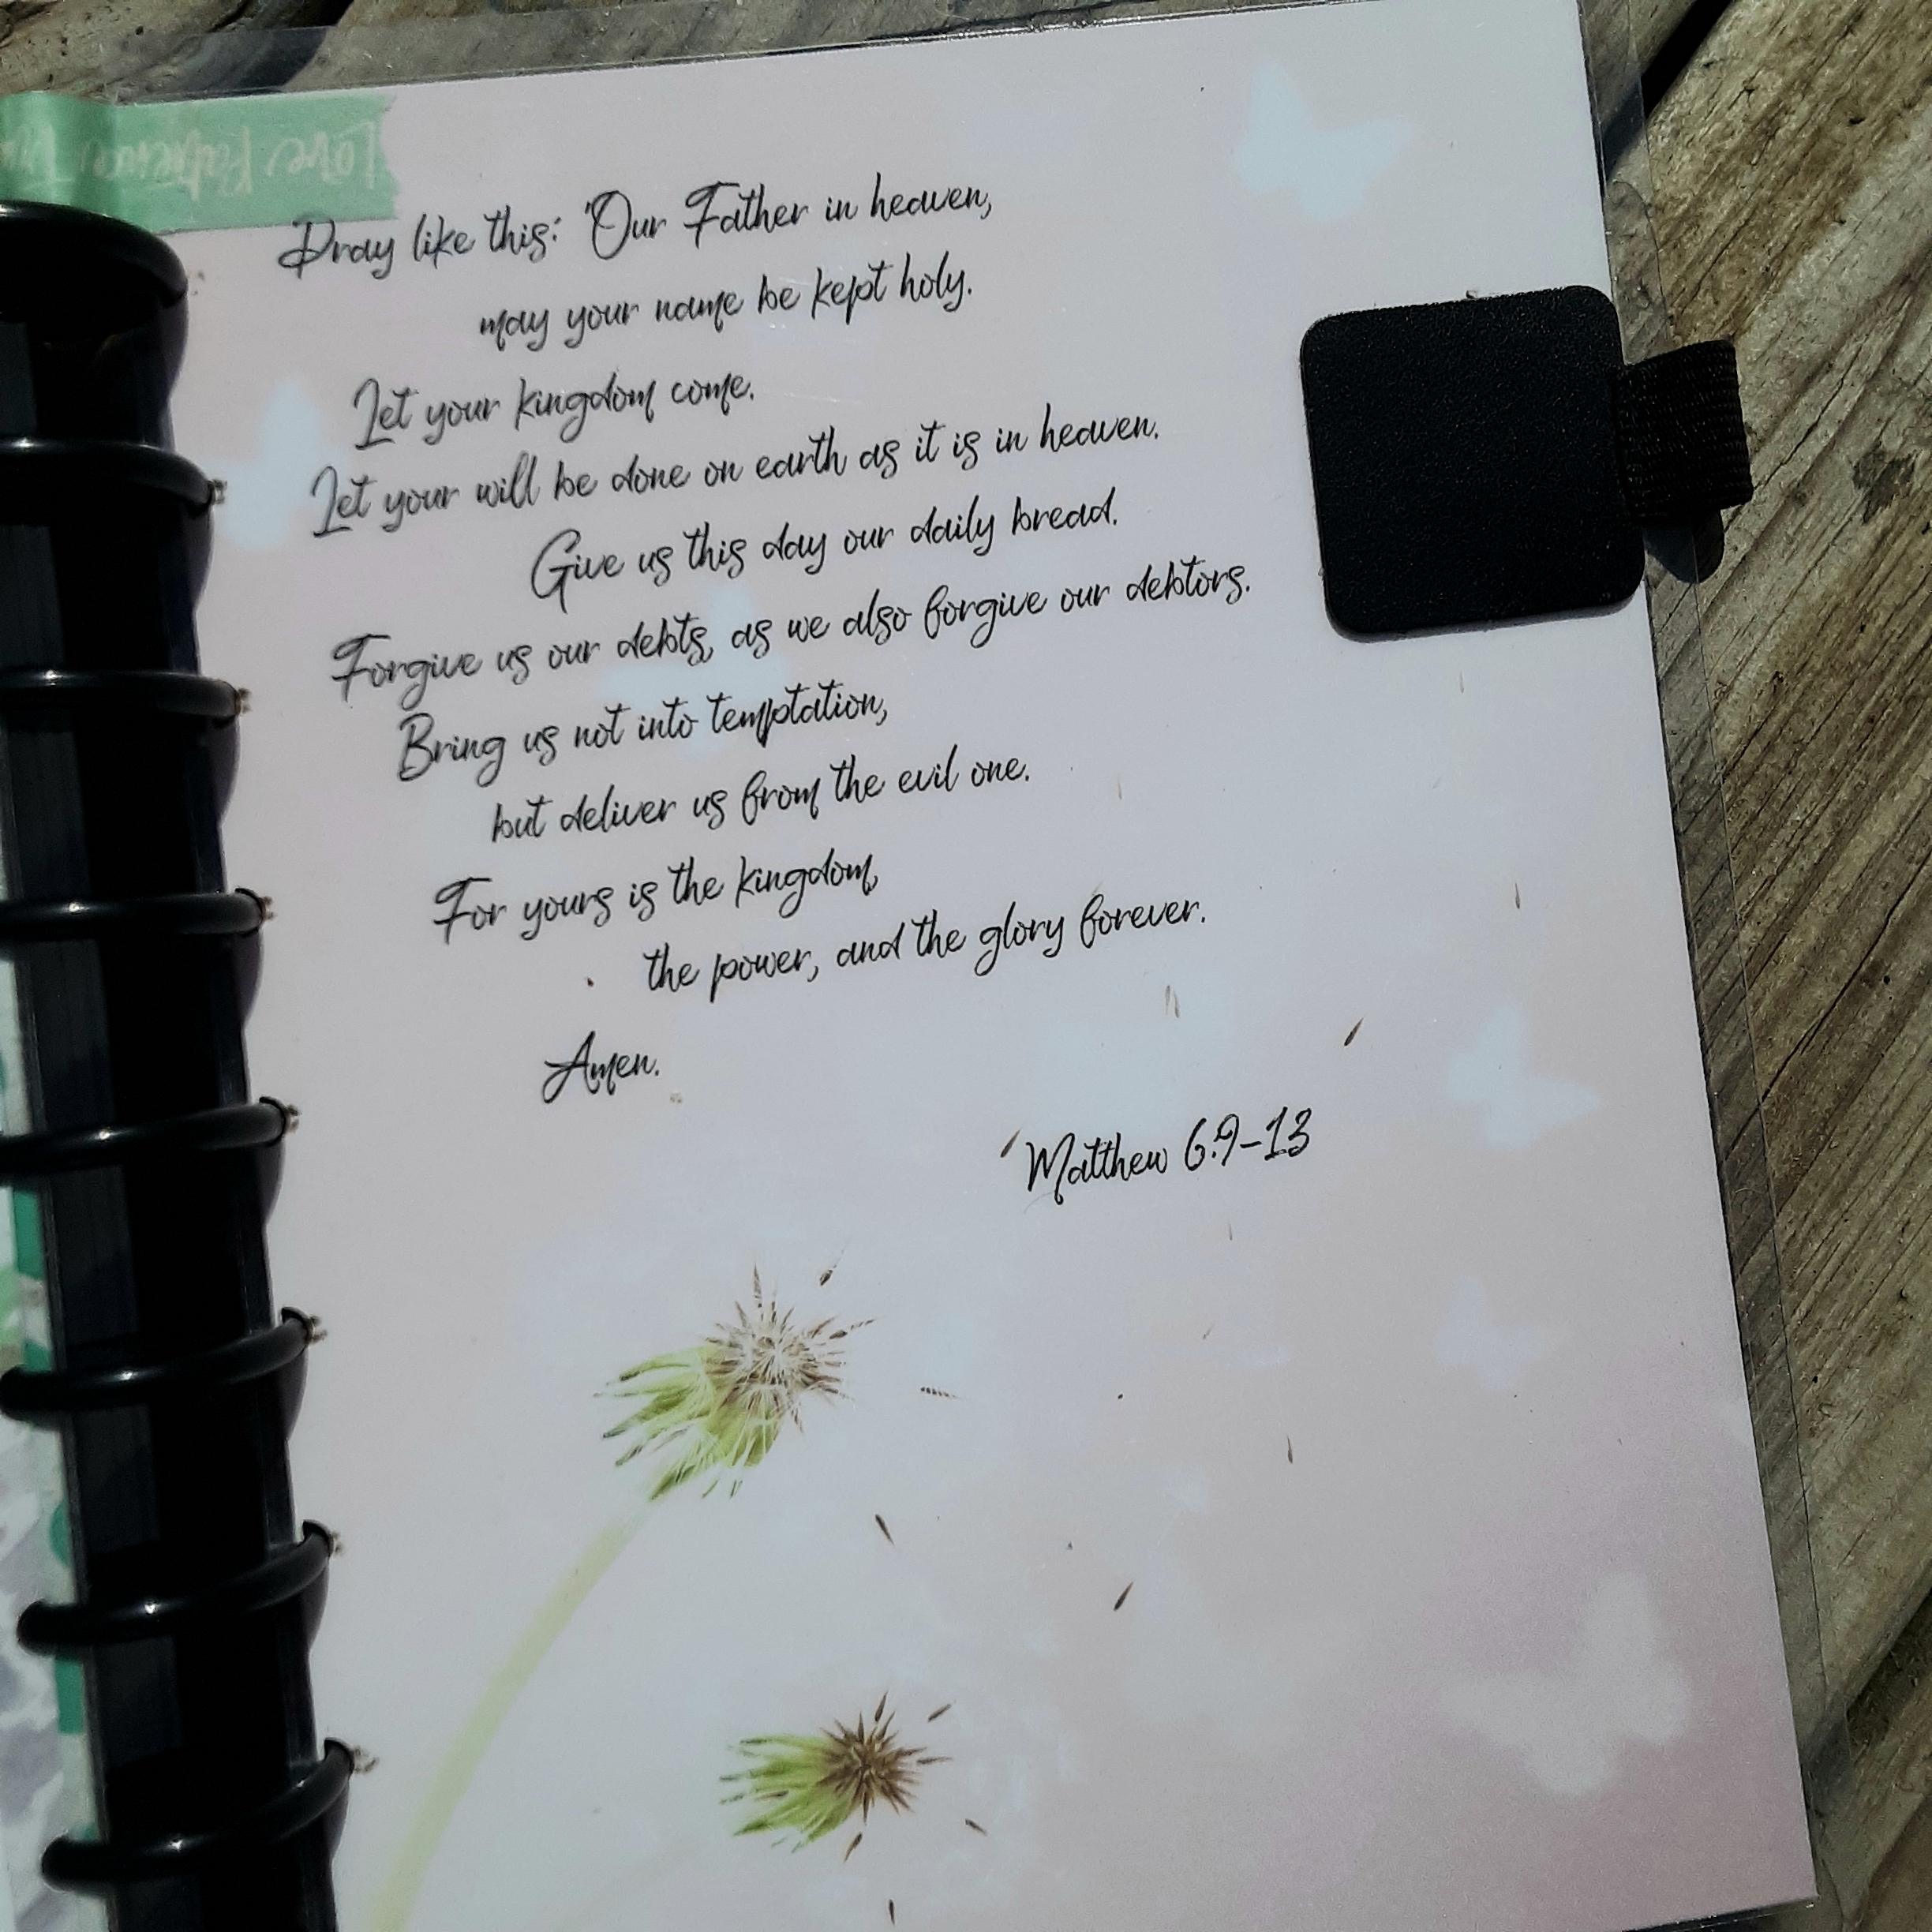 Love Patience
Pray like this: 'Our Father in heaven,
may your name be kept holy.
Let your kingdom come.
Let your will be done on earth as it is in heaven.
Give us this day our daily bread.
Forgive us our debts, as we also forgive our debtors.
Bring us not into temptation,
but deliver us from the evil one.
For yours is the kingdom,
the power, and the glory forever.
Amen.
Matthew 6:9-13